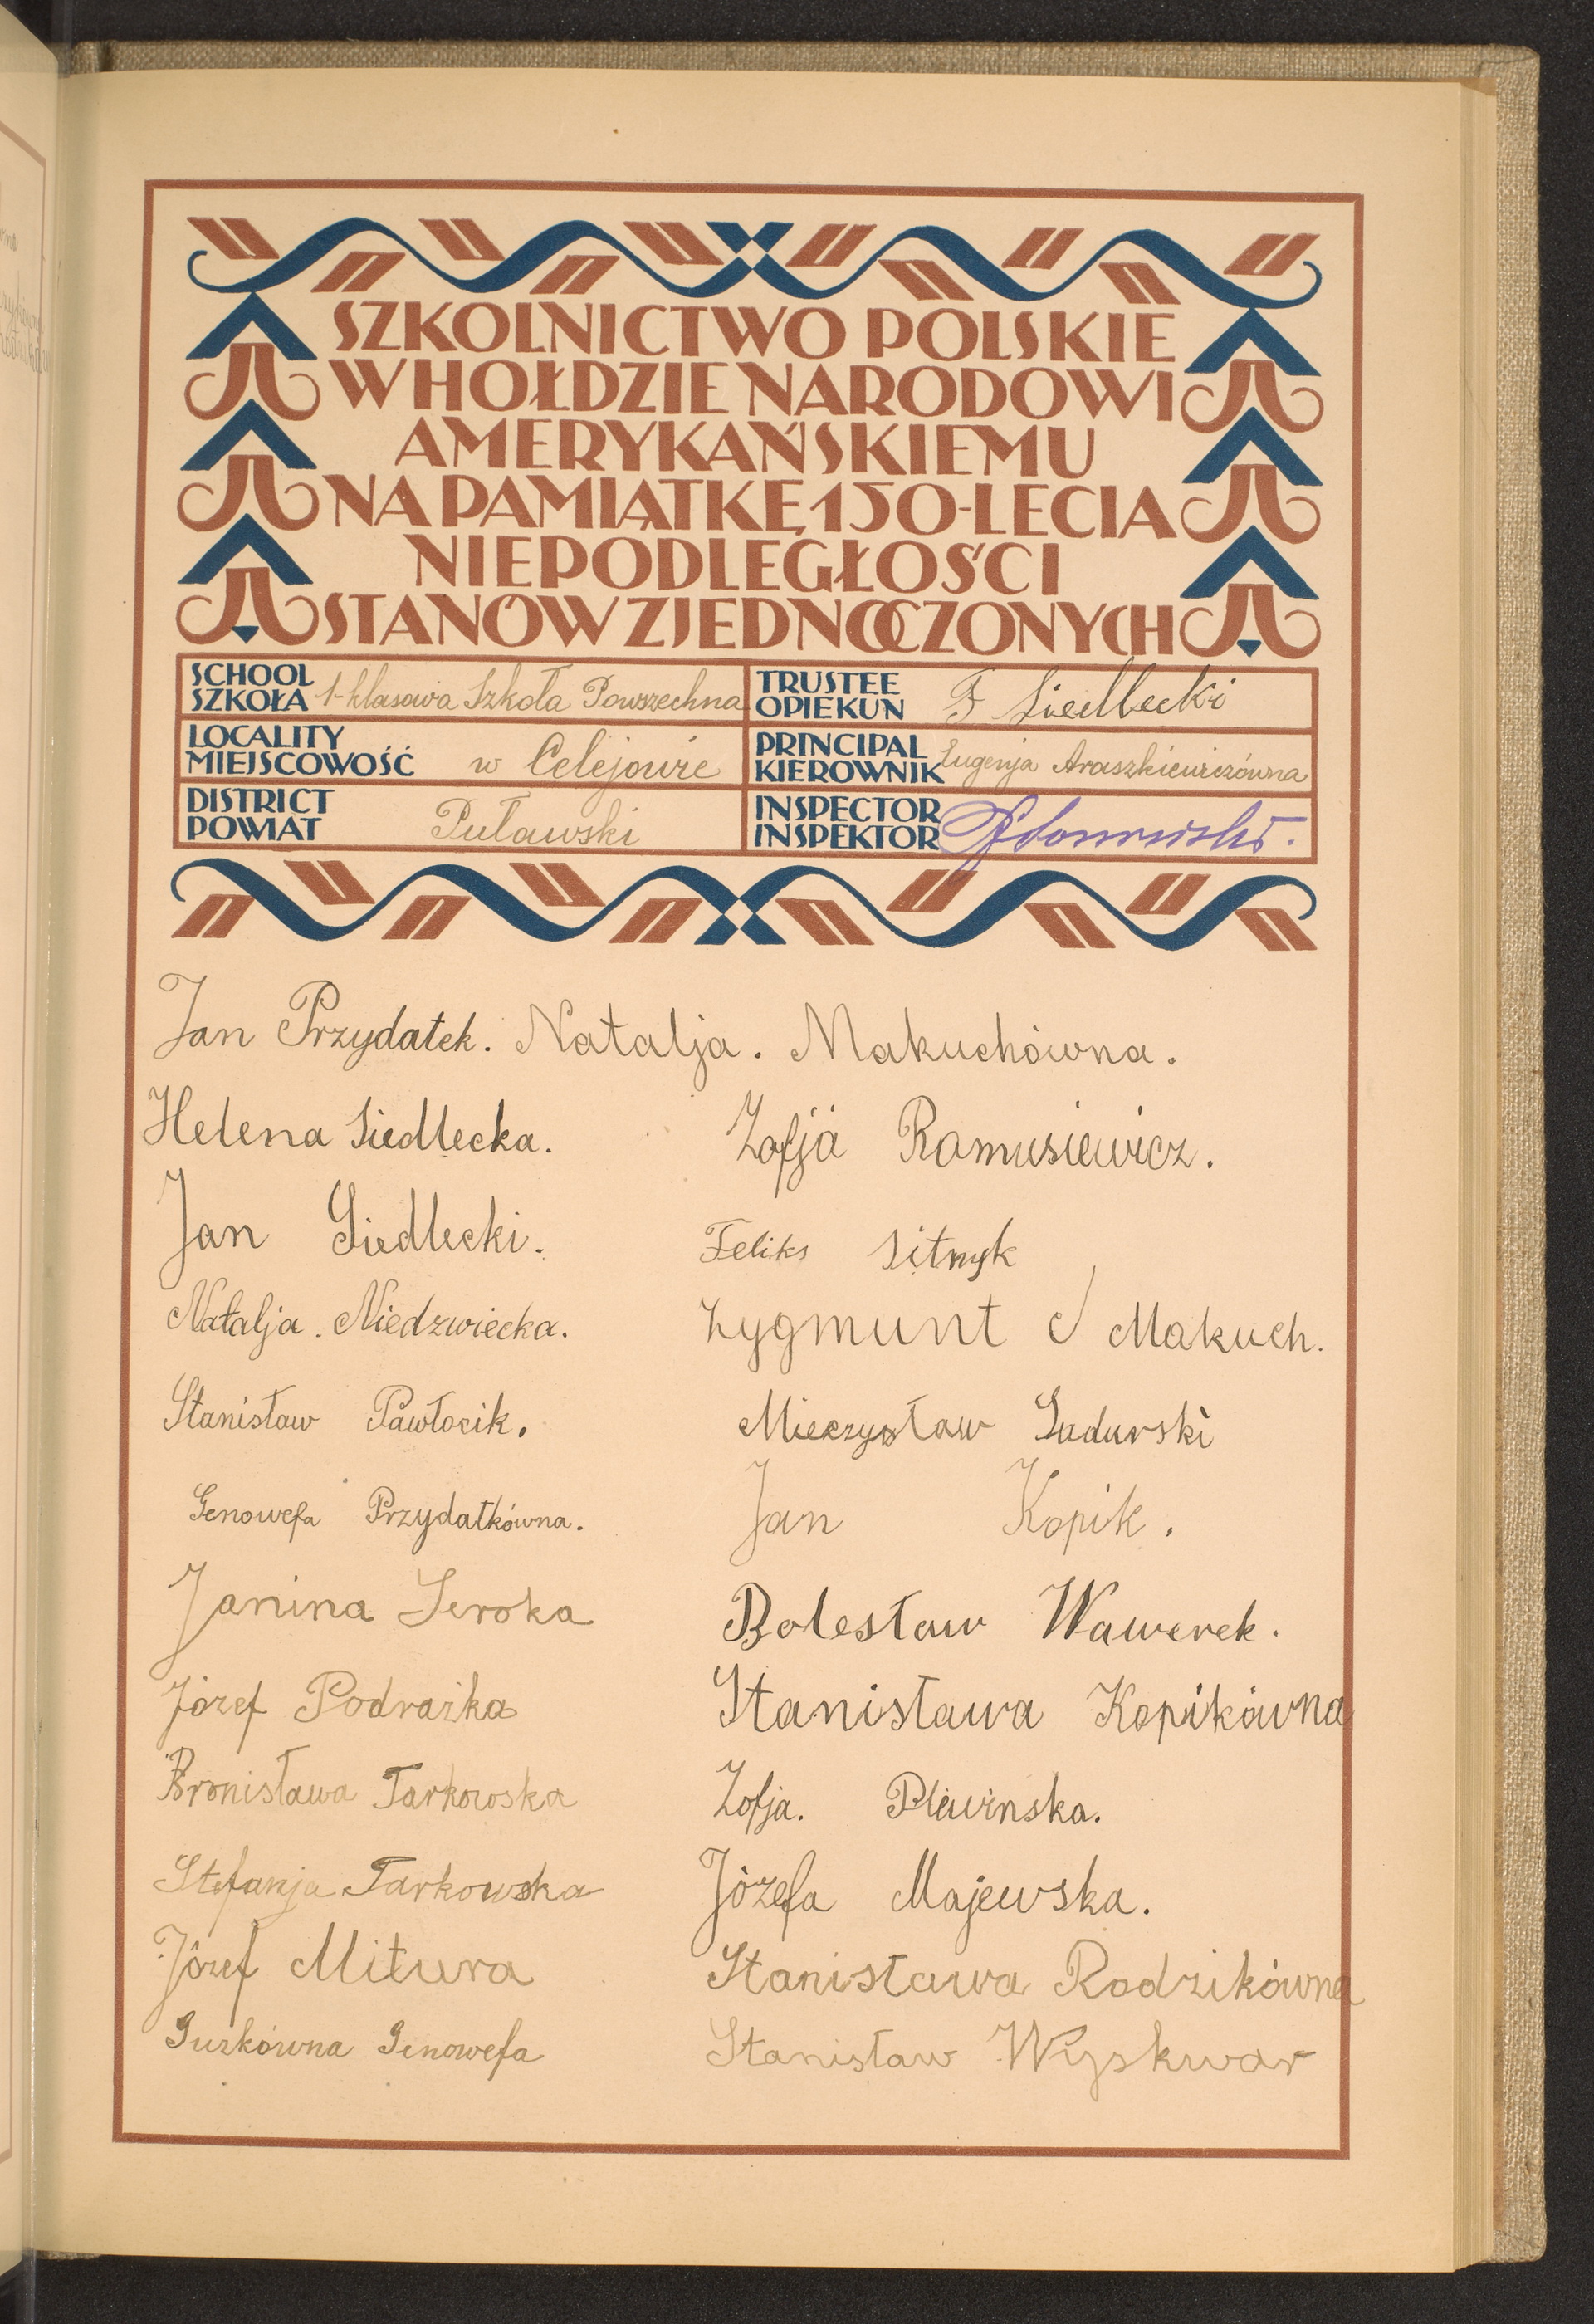 SZKOLNICTWO POLSKIE
W HOŁDZIE NARODOWI
AMERYKAŃSKIEMU
NA PAMIĄTKĘ 150-LECIA
NIEPODLEGŁOŚCI
STANÓW ZJEDNOCZONYCH
SCHOOL
SZKOŁA 1-klasowa Szkoła Powszechna
TRUSTEE
OPIEKUN F Siedlecki
LOCALITY
MIEJSCOWOŚĆ w Celejowie
PRINCIPAL
KIEROWNIK Eugenja Araszkiewiczówna
DISTRICT
POWIAT Puławski
INSPECTOR
INSPEKTOR
Jan Przydatek. Natalja. Makuchówna.
Helena Siedlecka. Zofja Romusiewicz.
Jan Siedlecki. Feliks Sitnyk
Natalja. Niedzwiecka. Zygmunt Makuch.
Stanisław Pawłocik. Mieczysław Sadurski
Genowefa Przydatkówna. Jan Kopik.
Janina Seroka Bolesław Wawerek.
Józef Podrażka Stanisława Kopikówna
Bronisława Tarkowska Zofja. Plewinska.
Stefanja Tarkowska Józefa Majewska.
Józef Mitura Stanisława Rodzikówna
Guzkówna Genowefa Stanisław Wyskwar